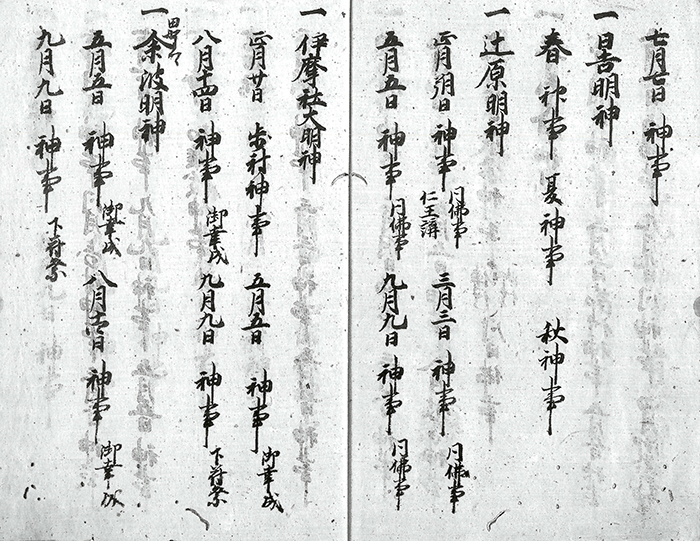 七月七日 神事
一 日吉明神
春 神事 夏神事 秋神事
一 辻原明神
正月朔日 神事 同佛事 仁王講 三月三日 神事 同佛事
五月五日 神事 同佛事 九月九日 神事 同佛事
一 伊摩社大明神
正月廿日 歩射神事 五月五日 神事 御幸成
八月十四日 神事 御幸成 九月九日 神事 下符祭
一 余波明神
五月五日 神事 御幸成 八月 日 神事 御幸成
九月九日 神事 下符祭